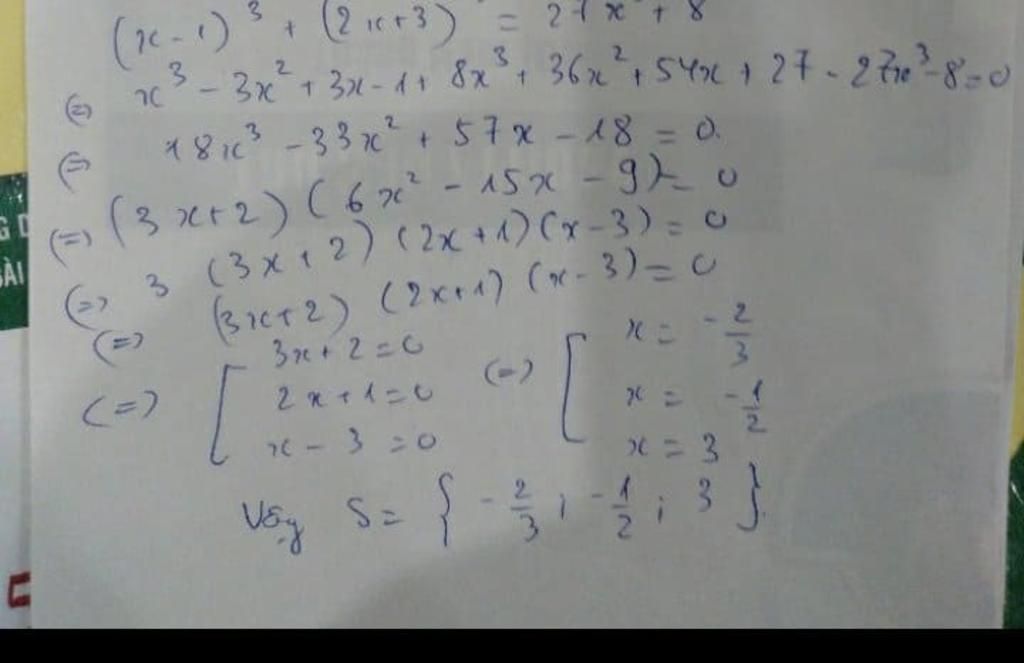 (x-1)³ + (2x+3) = 27x + 8
(=) x³ - 3x² + 3x - 1 + 8x³ + 36x² + 54x + 27 - 27x³ - 8 = 0
(=) 18x³ - 33x² + 57x - 18 = 0.
(=) (3x+2) (6x² - 15x - 9) = 0
(=) 3 (3x+2) (2x+1) (x-3) = 0
(=) (3x+2) (2x+1) (x-3) = 0
(=) [ 3x+2=0 (=) [ x = -2/3
2x+1=0 x = -1/2
x-3=0 x = 3
Vậy S = { -2/3 ; -1/2 ; 3 }.